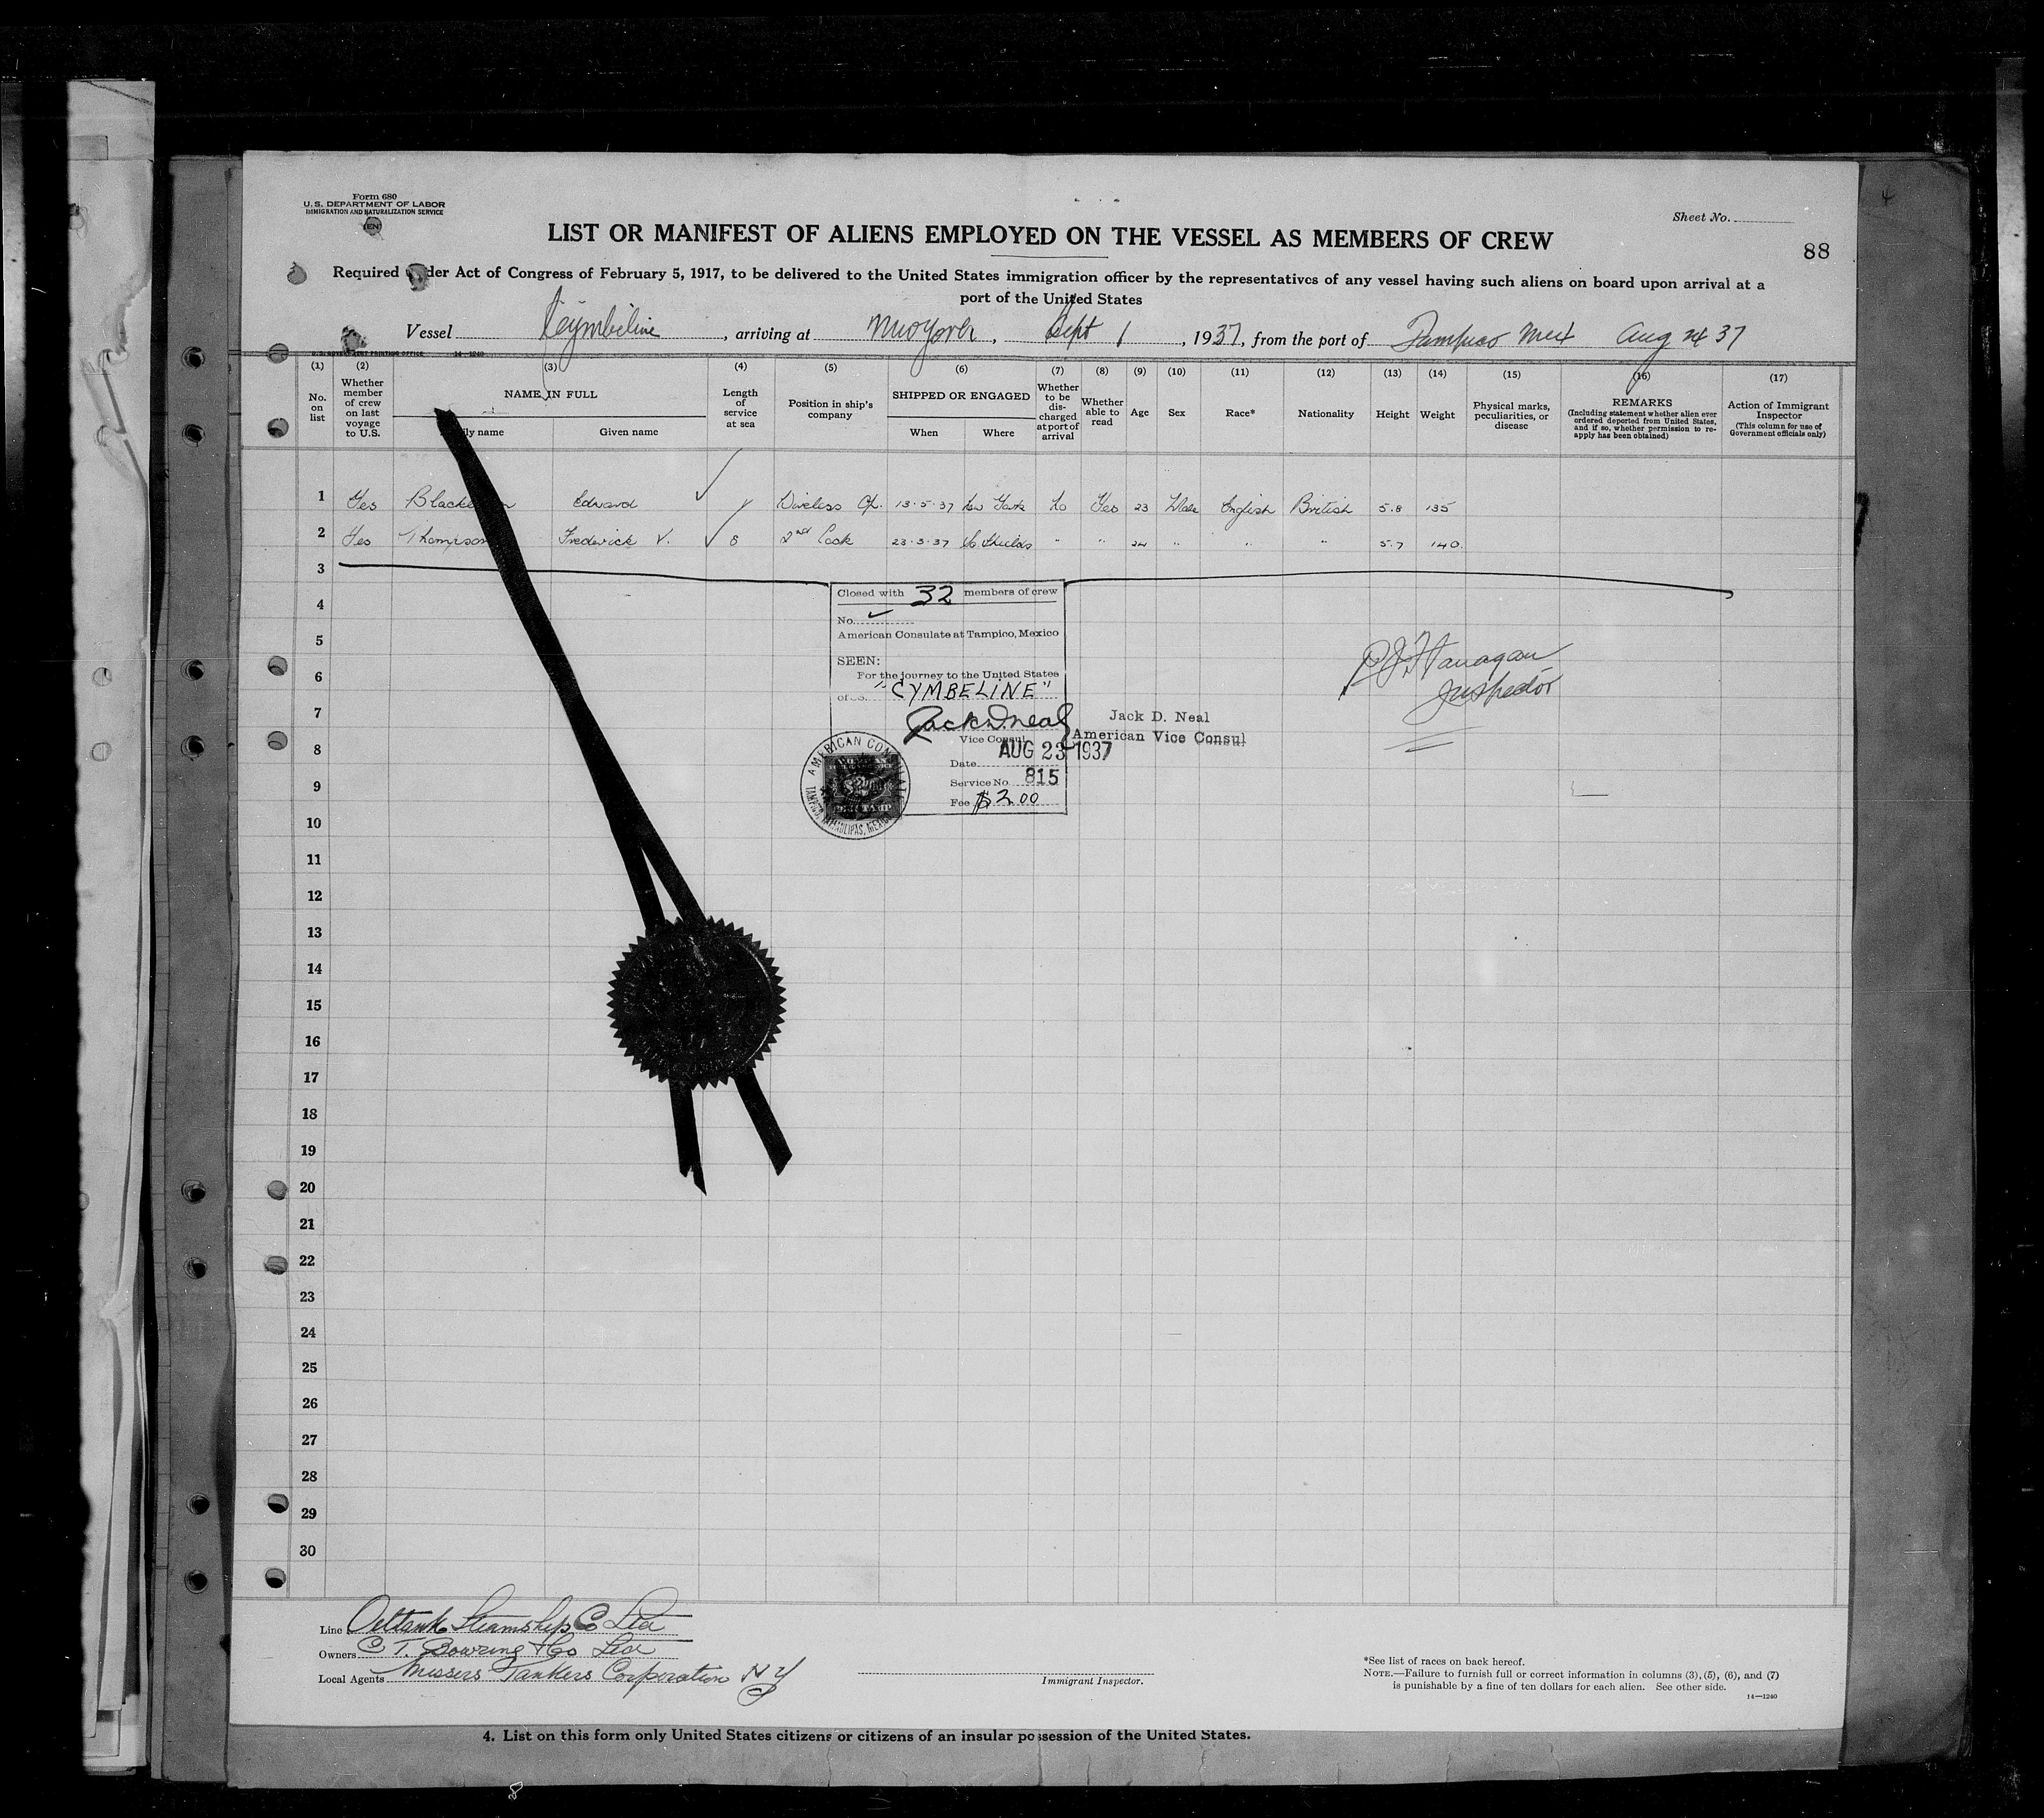 Form 680
U. S. DEPARTMENT OF LABOR
IMMIGRATION AND NATURALIZATION SERVICE
(EN)
Sheet No.
LIST OR MANIFEST OF ALIENS EMPLOYED ON THE VESSEL AS MEMBERS OF CREW
88
Required der Act of Congress of February 5, 1917, to be delivered to the United States immigration officer by the representatives of any vessel having such aliens on board upon arrival at a
port of the United States
Vessel Cymbeline, arriving at New York, Sept 1, 1937, from the port of Tampico Mex Aug 24 37
14—1240
(1) (2) (3) (4) (5) (6) (7) (8) (9) (10) (11) (12) (13) (14) (15) (16) (17)
No. on list
Whether member of crew on last voyage to U.S.
NAME IN FULL
ily name
Given name
Length of service at sea
Position in ship's company
SHIPPED OR ENGAGED
When
Where
Whether to be discharged at port of arrival
Whether able to read
Age
Sex
Race*
Nationality
Height
Weight
Physical marks, peculiarities, or disease
REMARKS
(Including statement whether alien ever ordered deported from United States, and if so, whether permission to re-apply has been obtained)
Action of Immigrant Inspector
(This column for use of Government officials only)
1 Yes Black Edward Wireless Op. 13·5·37 New York No Yes 23 Male English British 5.8 135
2 Yes Thompson Frederick V. 8 2nd Cook 23·3·37 So. Shields " " 24 " " " 5.7 140.
3
4
5
6
7
8
9
10
11
12
13
14
15
16
17
18
19
20
21
22
23
24
25
26
27
28
29
30
Closed with 32 members of crew
No.
American Consulate at Tampico, Mexico
SEEN:
For the journey to the United States
of S. "CYMBELINE"
Jack D. Neal
Vice Consul
Jack D. Neal
American Vice Consul
Date AUG 23 1937
Service No. 815
Fee $2.00
AMERICAN CONSULATE
TAMPICO, TAMAULIPAS, MEXICO
P J Flanagan
Inspector
Line Oiltank Steamship Co Ltd
Owners C T. Bowring & Co Ltd
Local Agents Messers Tankers Corporation N Y
Immigrant Inspector.
*See list of races on back hereof.
NOTE.—Failure to furnish full or correct information in columns (3), (5), (6), and (7)
is punishable by a fine of ten dollars for each alien. See other side.
14—1240
4. List on this form only United States citizens or citizens of an insular possession of the United States.